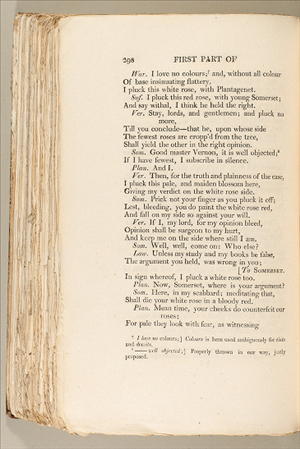 298 FIRST PART OF
War. I love no colours;⁷ and, without all colour
Of base insinuating flattery,
I pluck this white rose, with Plantagenet.
Suf. I pluck this red rose, with young Somerset;
And say withal, I think he held the right.
Ver. Stay, lords, and gentlemen; and pluck no
more,
Till you conclude—that he, upon whose side
The fewest roses are cropp'd from the tree,
Shall yield the other in the right opinion.
Som. Good master Vernon, it is well objected;⁸
If I have fewest, I subscribe in silence.
Plan. And I.
Ver. Then, for the truth and plainness of the case,
I pluck this pale, and maiden blossom here,
Giving my verdict on the white rose side.
Som. Prick not your finger as you pluck it off;
Lest, bleeding, you do paint the white rose red,
And fall on my side so against your will.
Ver. If I, my lord, for my opinion bleed,
Opinion shall be surgeon to my hurt,
And keep me on the side where still I am.
Som. Well, well, come on: Who else?
Law. Unless my study and my books be false,
The argument you held, was wrong in you;
[To SOMERSET.
In sign whereof, I pluck a white rose too.
Plan. Now, Somerset, where is your argument?
Som. Here, in my scabbard; meditating that,
Shall die your white rose in a bloody red.
Plan. Mean time, your cheeks do counterfeit our
roses;
For pale they look with fear, as witnessing
⁷ I love no colours;] Colours is here used ambiguously for tints
and deceits.
⁸ —— well objected;] Properly thrown in our way, justly
proposed.